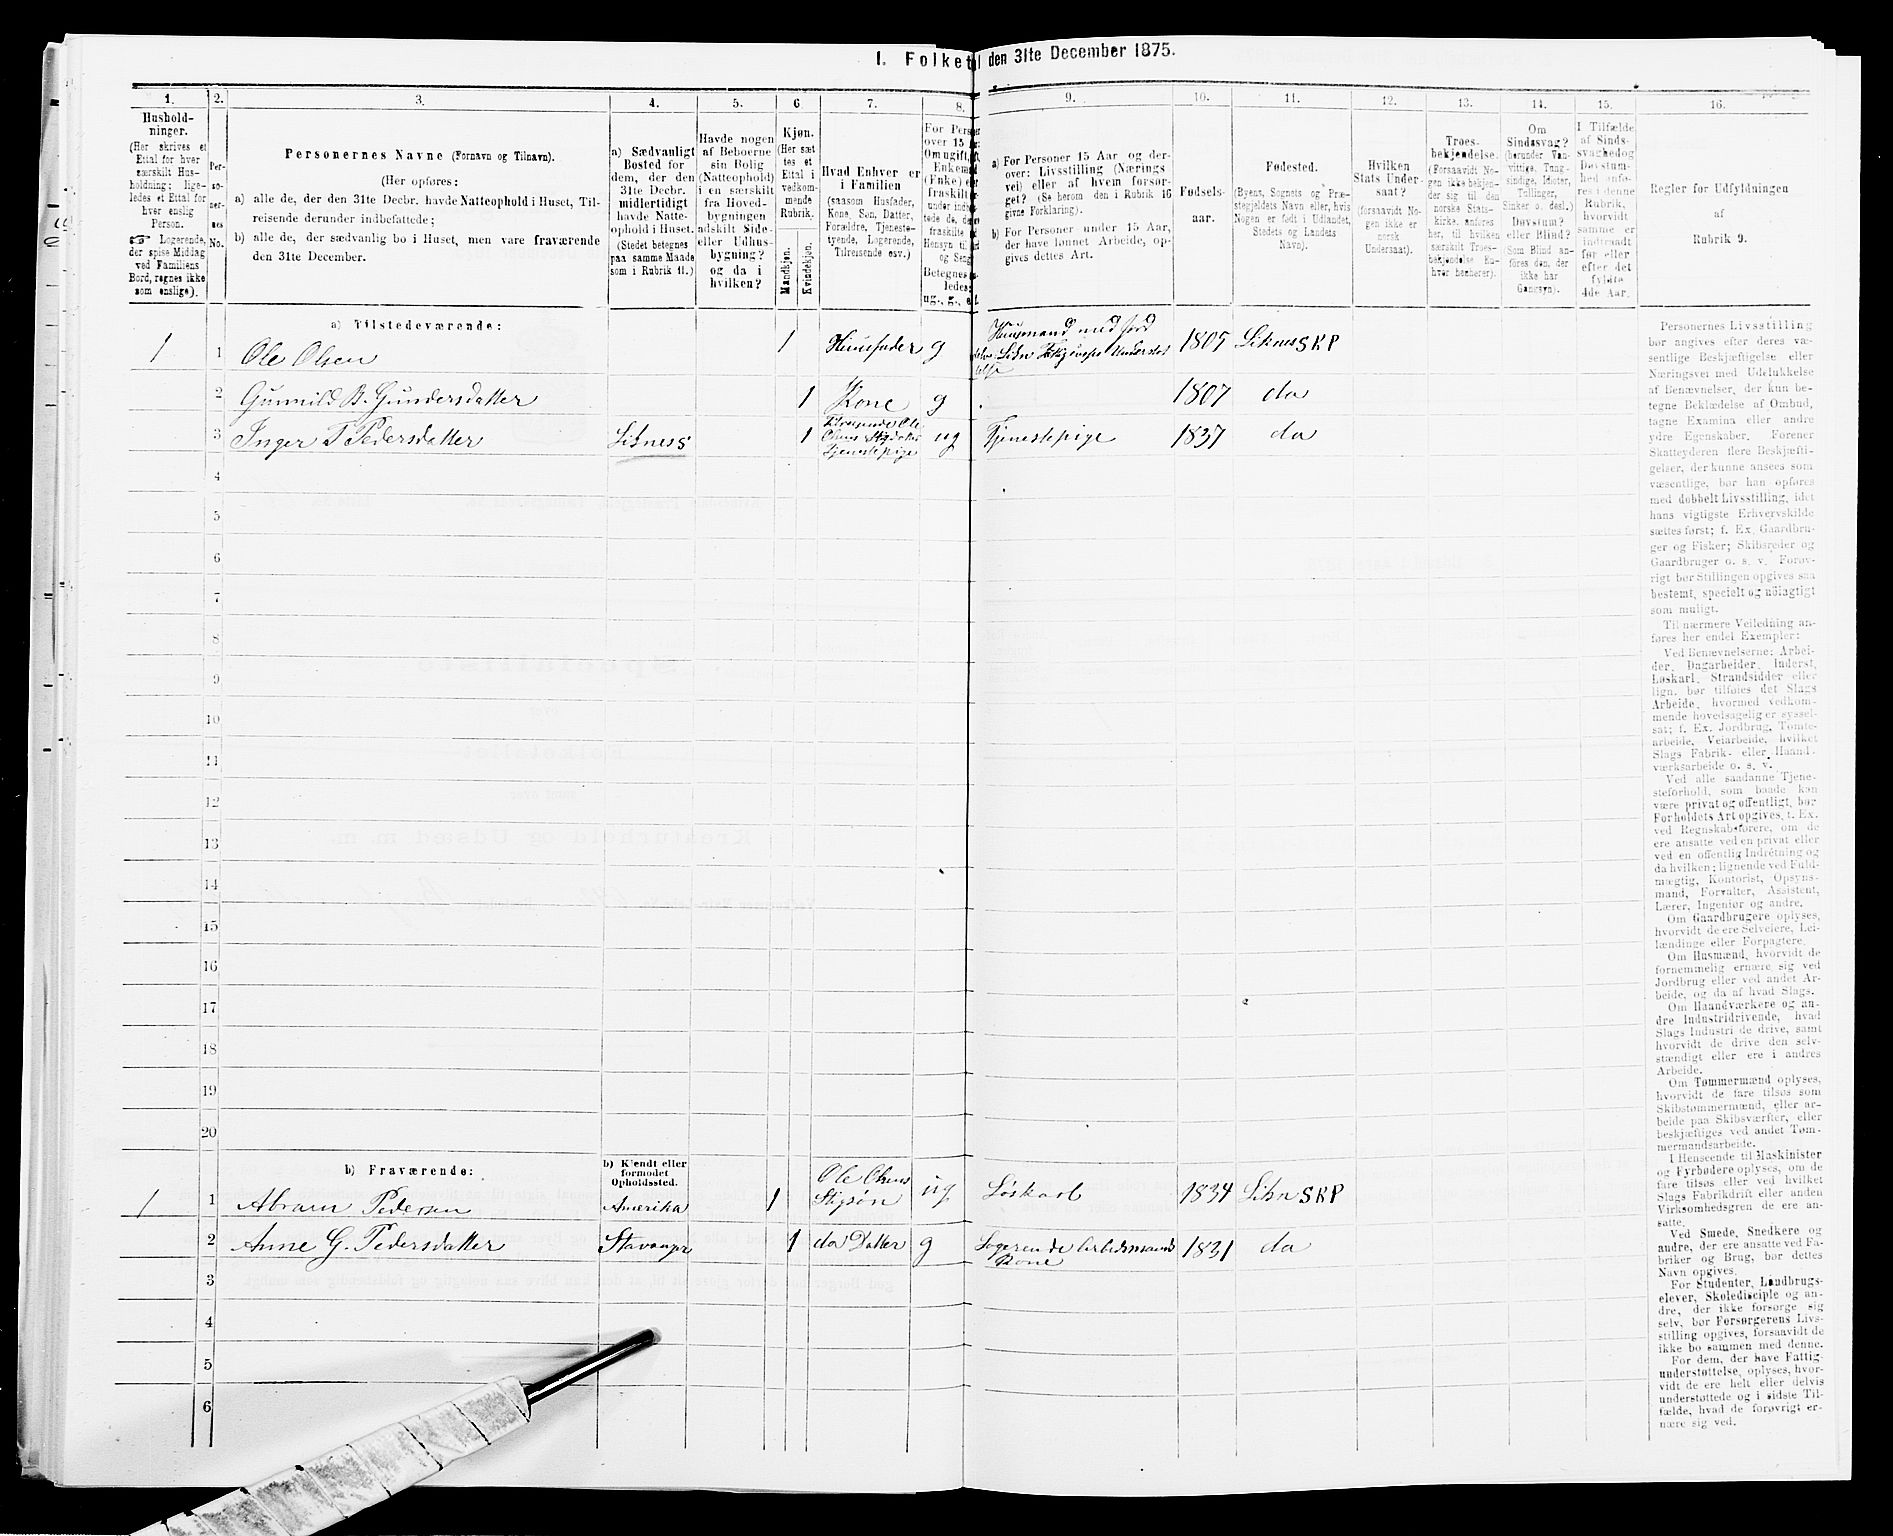 I. Folketal den 31te December 1875.
1. 2. 3. 4. 5. 6. 7. 8. 9. 10. 11. 12. 13. 14. 15. 16.
Hushold-
ninger.
(Her skrives et
Ettal for hver
særskilt Hus-
holdning; lige-
ledes et Ettal for
hver enslig
Person.
☞ Logerende,
der spise Middag
ved Familiens
Bord, regnes ikke
som enslige).
Per-
so-
ner-
nes
No.
Personernes Navne (Fornavn og Tilnavn).
(Her opføres:
a) alle de, der den 31te Decbr. havde Natteophold i Huset, Til-
reisende derunder indbefattede;
b) alle de, der sædvanlig bo i Huset, men vare fraværende
den 31te December.
a) Sædvanligt
Bosted for
dem, der den
31te Decbr.
midlertidigt
havde Natte-
ophold i Huset.
(Stedet betegnes
paa samme Maade
som i Rubrik 11.)
Havde nogen
af Beboerne
sin Bolig
(Natteophold)
i en særskilt
fra Hoved-
bygningen
adskilt Side-
eller Udhus-
bygning?
og da i
hvilken?
Kjøn.
(Her sæt-
tes et
Ettal i
vedkom-
mende
Rubrik.
Mandkjøn.
Kvindekjøn.
Hvad Enhver er
i Familien
(saasom Husfader,
Kone, Søn, Datter,
Forældre, Tjeneste-
tyende, Logerende,
Tilreisende osv.)
For Perso
over 15 A
Om ugift,
Enkem
(Enke) e
fraskilt
under indbe-
tede de, de
fraskilte
Hensyn til
og Seng
Betegnes
ledes:
ug., g., e
a) For Personer 15 Aar og der-
over: Livsstilling (Nærings
vei) eller af hvem forsør-
get? (Se herom den i Rubrik 16
givne Forklaring).
b) For Personer under 15 Aar,
der have lønnet Arbeide, op-
gives dettes Art.
Fødsels-
aar.
Fødested.
(Byens, Sognets og Præ-
stegjeldets Navn eller, hvis
Nogen er født i Udlandet,
Stedets og Landets
Navn).
Hvilken
Stats Under-
saat?
(forsaavidt No-
gen ikke er
norsk
Undersaat).
Troes-
bekjendelse.
(Forsaavidt No-
gen ikke bekjen-
der sig til den
norske Stats-
kirke, anføres
her, til hvilken
særskilt Troes-
bekjendelse En-
hver henhører).
Om
Sindssvag?
(herunder Van-
vittige, Tung-
sindige, Idioter,
Tullinger,
Sinker o. desl.)
Døvstum?
eller Blind?
(Som Blind an-
føres den, der
ikke har
Gangsyn).
I Tilfælde
af Sinds-
svaghed og
Døvstum-
hed anfø-
res i denne
Rubrik,
hvorvidt
samme er
indtraadt
før eller
efter det
fyldte
4de Aar.
Regler for Udfyldningen
af
Rubrik 9.
a) Tilstedeværende:
1 1 Ole Olsen 1 Huusfader g Huusmand med Jord 1805 Liknes SKP
2 Gunnild B. Gundersdatter 1 Kone g 1807 do
3 Inger T Pedersdatter Liknes 1 Tjenestepige ug Tjenestepige 1837 do
4
5
6
7
8
9
10
11
12
13
14
15
16
17
18
19
20
b) Fraværende:
b) Kjendt eller
formodet
Opholdssted.
1 1 Abram Pedersen Amerika 1 Ole Olsens Stifsøn ug Løskarl 1834 Likn SKP
2 Anne G. Pedersdatter Stavanger 1 do Datter g Logerende Arbeidsmands Kone 1831 do
3
4
5
6
Personernes Livsstilling
bør angives efter deres væ-
sentlige Beskjæftigelse eller
Næringsvei med Udelukkelse
af Benævnelser, der kun be-
tegne Beklædelse af Ombud,
tagne Examina eller andre
ydre Egenskaber. Forener
Skatteyderen flere Beskjæfti-
gelser, der kunne ansees som
væsentlige, bør han opføres
med dobbelt Livsstilling, idet
hans vigtigste Erhvervskilde
sættes først; f. Ex. Gaardbru-
ger og Fisker; Skibsreder og
Gaardbruger o. s. v. Forøv-
rigt bør Stillingen opgives saa
bestemt, specielt og nøiagtigt
som muligt.
Til nærmere Veiledning an-
føres her endel Exempler:
Ved Benævnelserne: Arbei-
der, Dagarbeider, Inderst,
Løskarl, Strandsidder eller
lign. bør tilføies det Slags
Arbeide, hvormed vedkom-
mende hovedsagelig er syssel-
sat; f. Ex. Jordbrug, Tomte-
arbeide, Veiarbeide, hvilket
Slags Fabrik- eller Haand-
værksarbeide o. s. v.
Ved alle saadanne Tjene-
steforhold, som baade kan
være privat og offentligt, bør
Forholdets Art opgives, f. Ex.
ved Regnskabsførere, om de
ere ansatte ved en privat eller
ved en offentlig Indretning og
da hvilken; lignende ved Fuld-
mægtig, Kontorist, Opsyns-
mand, Forvalter, Assistent,
Lærer, Ingeniør og andre.
Om Gaardbrugere oplyses,
hvorvidt de ere Selveiere, Lei-
lændinge eller Forpagtere.
Om Husmænd, hvorvidt de
fornemmelig ernære sig ved
Jordbrug eller ved andet Ar-
beide, og da af hvad Slags.
Om Haandværkere og an-
dre Industridrivende, hvad
Slags Industri de drive, samt
hvorvidt de drive den selv-
stændigt eller ere i andres
Arbeide.
Om Tømmermænd oplyses,
hvorvidt de fare tilsøs som
Skibstømmermænd, eller ar-
beide paa Skibsværfter, eller
beskjæftiges ved andet Tøm-
mermandsarbeide.
I Henseende til Maskinister
og Fyrbødere oplyses, om de
fare tilsøs eller ved hvilket
Slags Fabrikdrift eller anden
Virksomhedsgren de ere an-
satte.
Ved Smede, Snedkere og
andre, der ere ansatte ved Fa-
briker og Brug, bør dettes
Navn opgives.
For Studenter, Landbrugs-
elever, Skoledisciple og an-
dre, der ikke forsørge sig
selv, bør Forsørgerens Livs-
stilling opgives, forsaavidt de
ikke bo sammen med denne.
For dem, der have Fattig-
understøttelse, oplyses, hvor-
vidt de ere helt eller delvis
understøttede og i sidste Til-
fælde, hvad de forøvrigt er-
nære sig ved.